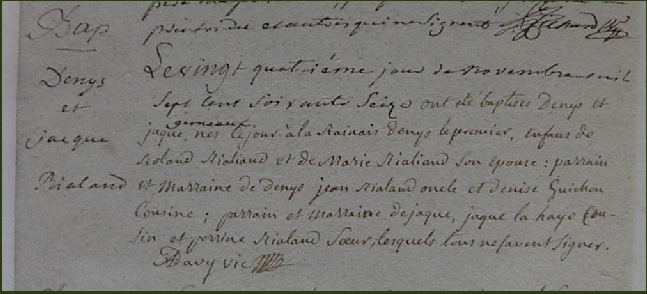 Bap
Denys
et
jacque
Rialand
et autres qui ne signent
Le vingt quatriéme jour de novembre mil
sept cent soixante seize ont été baptisés Denys et
gémeaux
jaque, nés le jour à la Rainais denys le premier, enfans de
Roland Rialand et de Marie Rialland son épouse : parrain
et marraine de denys jean Rialand oncle et denise Guichon
Cousine ; parrain et marraine de jaque, jaque la haye Cou-
sin et perrine Rialand Sœur, lesquels tous ne savent signer.
Davy vic